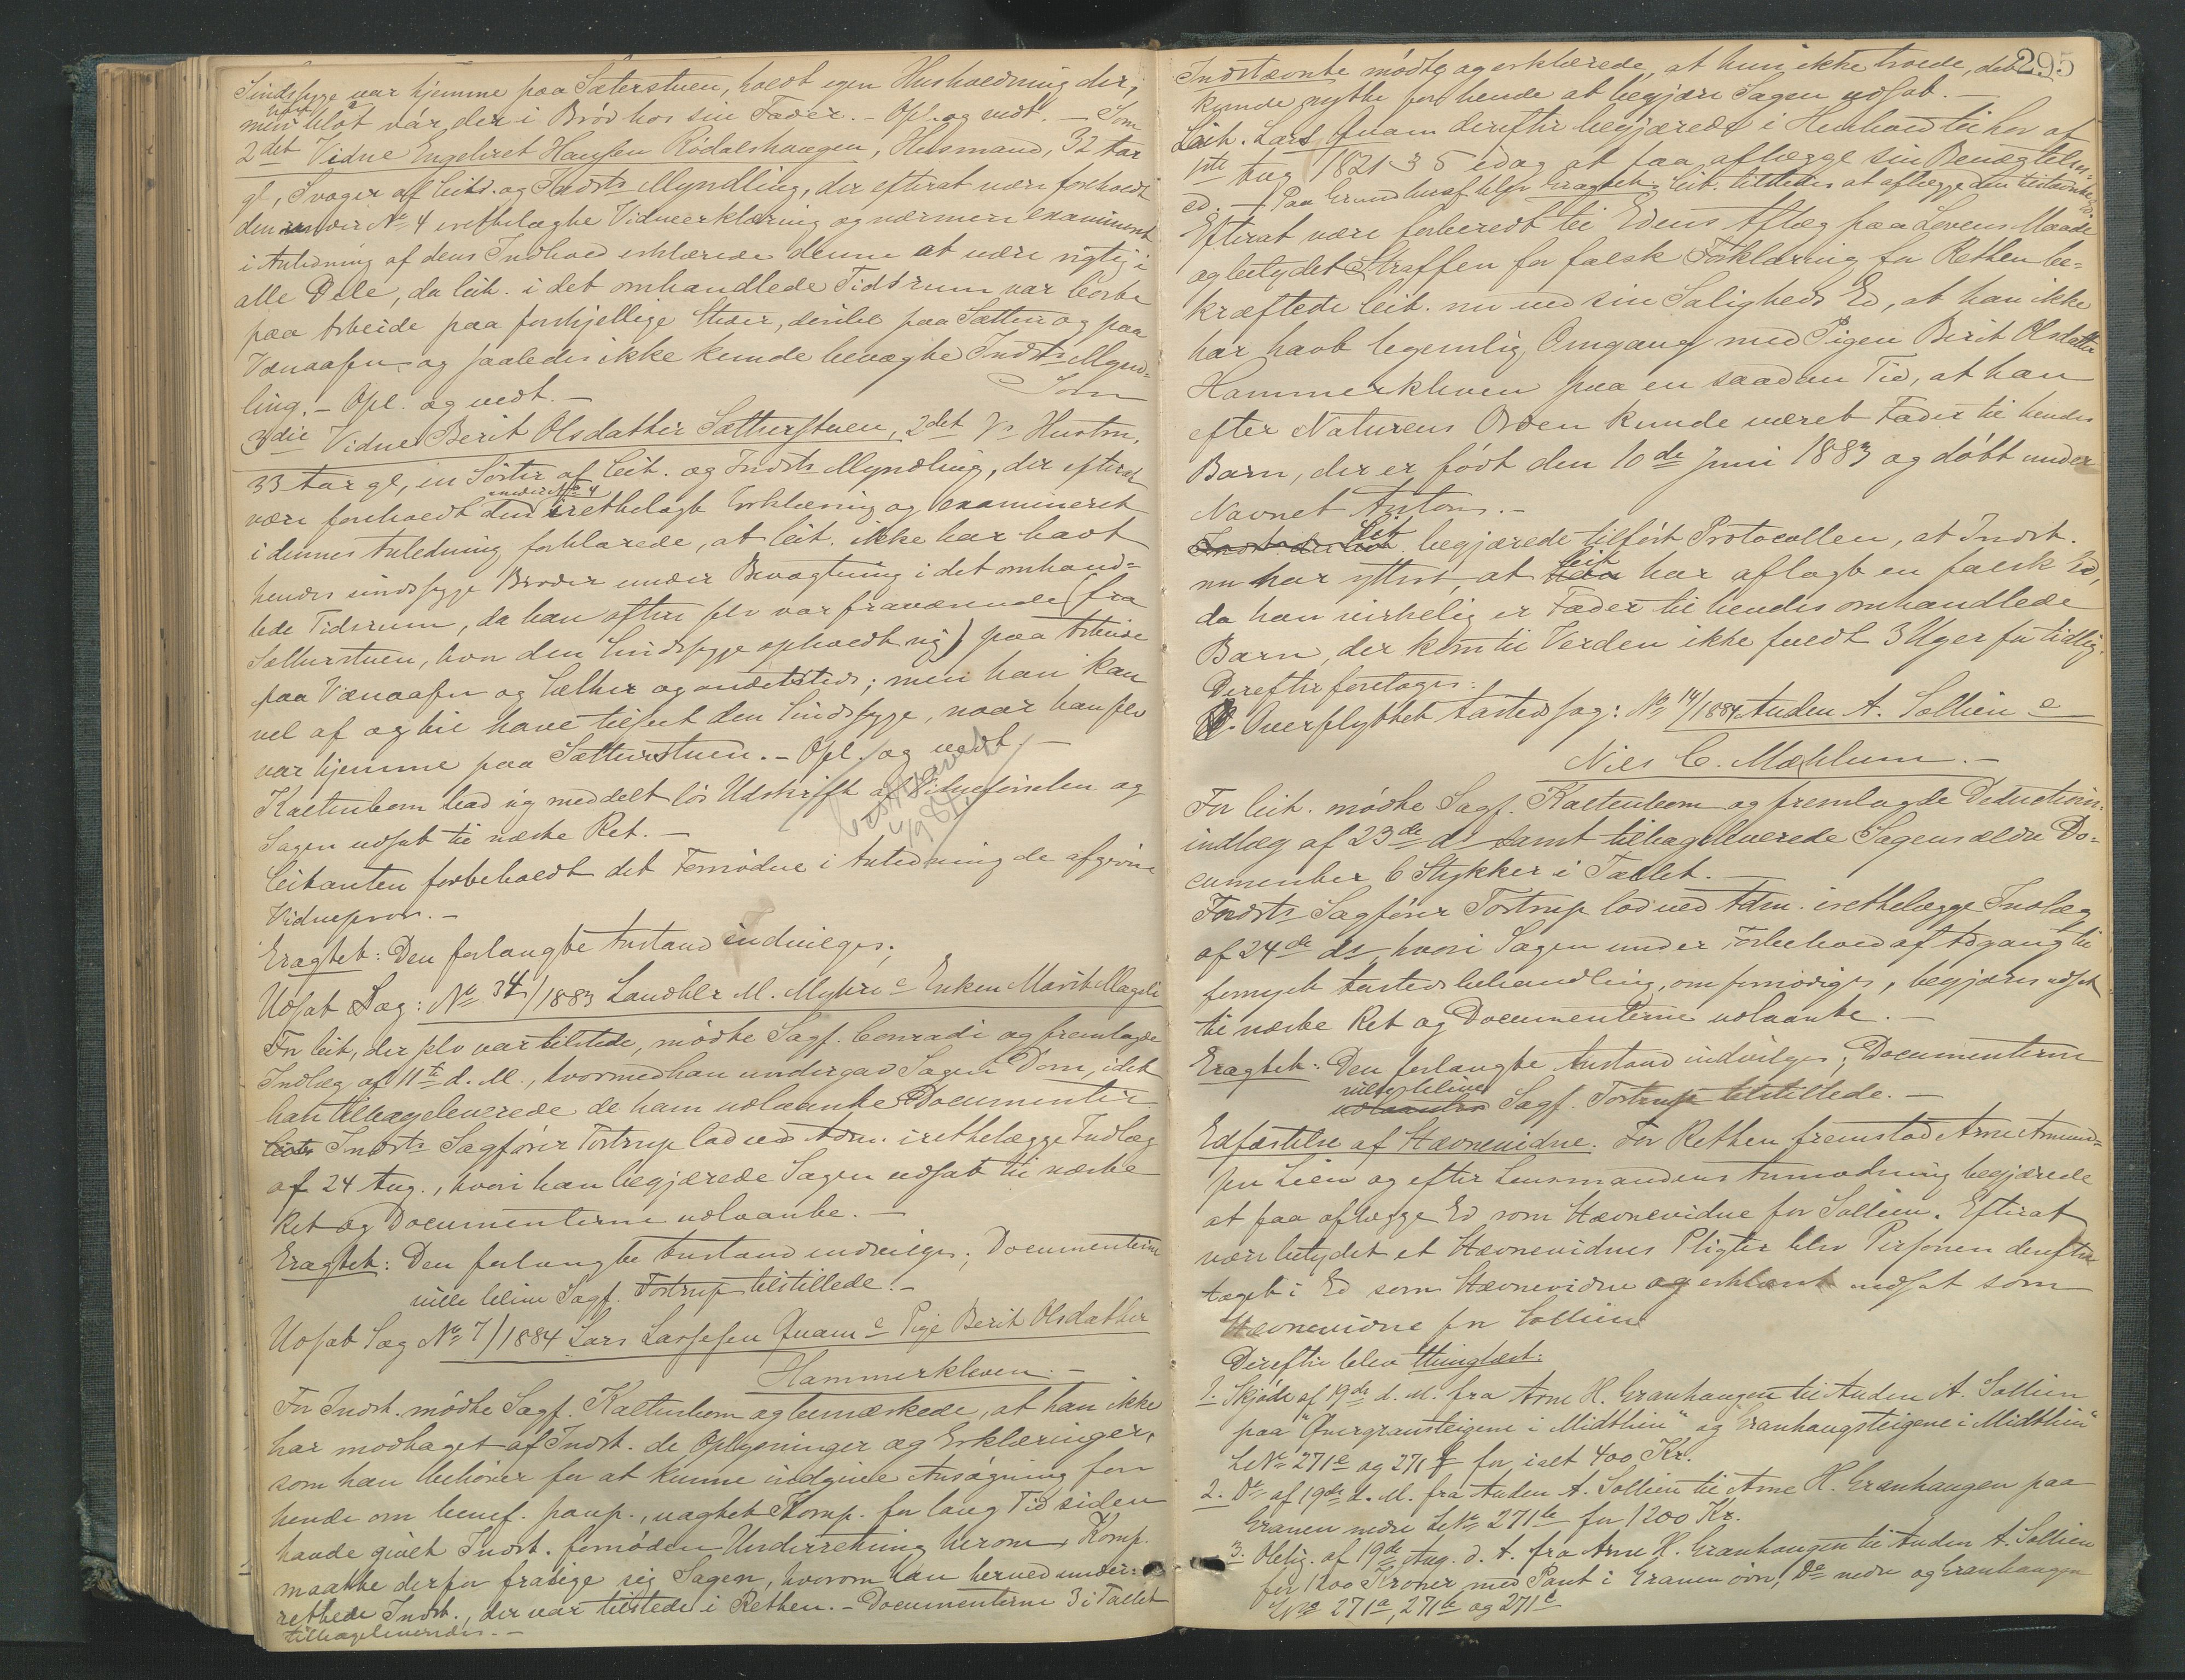 Sindssyge var hjemme paa Sæterstuen, holdt egen Husholdning der,
men blot var der i Brød hos sin Fader. – Opl. og vedt. – Som
2det Vidne Engebret Hansen Rødalshaugen, Husmand, 32 Aar
gl, Svoger af Citt. og Indsts Myndling, der efterat være foreholdt
den under No 4 irettelagte Vidneerklæring og nærmere examineret
i Anledning af dens Indhold erklærede denne at være rigtig i
alle Dele, da Cit. i det omhandlede Tidsrum var borte
paa Arbeide paa forskjellige Steder, deribl paa Sætter og paa
Vænaasen og saaledes ikke kunde bevogte Indsts Mynd-
ling. – Opl. og vedt. – Som
3die Vidne Berit Olsdatter Sætterstuen, 2det Vs Hustru,
33 Aar gl, en Søster af Cit. og Indsts Myndling, der efterat
under No 4
være foreholdt den irettelagte Erklæring og examineret
i dennes Anledning forklarede, at Cit. ikke har havt
hendes sindssyge Broder under Bevogtning i det omhand-
lede Tidsrum, da han oftere selv var fraværende (fra
Sætterstuen, hvor den Sindssyge opholdt sig) paa Arbeide
paa Vænaasen og Sætter og andetsteds; men han kan
vel af og til have tilseet den Sindssyge, naar han selv
var hjemme paa Sætterstuen. – Opl. og vedt. –
Kaltenborn bad sig meddelt løs Udskrift af Vidneførselen og
Sagen udsat til næste Ret. –
Citanten forbeholdt det Fornødne i Anledning de afgivne
Vidneprov. –
Eragtet: Den forlangte Anstand indvilges.
Udsat Sag: No 34/1883 Landhlr M. Myhre c Enken Marit Mageli
For Cit, der selv var tilstede, mødte Sagf. Conradi og fremlagde
Indlæg af 11te d. M., hvormed han undergav Sagen Dom, idet
han tilbageleverede de ham udlaante Documenter.
Indsts Sagfører Tostrup lod ved Adm. irettelægge Indlæg
af 24 Aug., hvori han begjærede Sagen udsat til næste
Ret og Documenterne udlaante. –
Eragtet: Den forlangte Anstand indvilges; Documenterne
ville blive Sagf. Tostrup tilstillede. –
Udsat Sag No 7/1884 Lars Larsesen Quam c Pige Berit Olsdatter
Hammerkleven. –
For Indst. mødte Sagf. Kaltenborn og bemærkede, at han ikke
har modtaget af Indst. de Oplysninger og Erklæringer,
som han behøver for at kunne indgive Ansøgning for
hende om benef. paup., uagtet Komp. for lang Tid siden
havde givet Indst. fornøden Underretning herom. Komp.
maatte derfor frasige sig Sagen, hvorom han herved under-
rettede Indst., der var tilstede i Retten. – Documenterne 3 i Tallet
tilbageleveredes. –
295
Indstævnte mødte og erklærede, at hun ikke troede, det
kunde nytte for hende at begjære Sagen udsat. –
Cit. Lars Quam derefter begjærede i Henhold til Lov af
1ste Aug 1821 § 5 idag at faa aflægge sin Benægtelses-
ed. – Paa Grund heraf blev Eragtet: Cit. tilstedes at aflægge den tilstævnte Ed
Efterat være forberedt til Edens Aflæg paa Lovens Maade
og betydet Straffen for falsk Forklaring for Retten be-
kræftede Cit. nu ved sin Saligheds Ed, at han ikke
har havt legemlig Omgang med Pigen Berit Olsdatter
Hammerkleven paa en saadan Tid, at han
efter Naturens Orden kunde været Fader til hendes
Barn, der er født den 10de Juni 1883 og døbt under
Navnet Anton. –
Cit. begjærede tilført Protocollen, at Indst.
nu har yttret, at Cit. har aflagt en falsk Ed,
da han virkelig er Fader til hendes omhandlede
Barn, der kom til Verden ikke fuldt 3 Uger for tidlig.
Derefter foretoges:
Overflyttet Aastedssag: No 14/1884 Anden A. Sollien c
Niels C. Mæhlum. –
For Cit. mødte Sagf. Kaltenborn og fremlagde Deductions-
indlæg af 23de ds samt tilbageleverede Sagens ældre Do-
cumenter 6 Stykker i Tallet. –
Indsts Sagfører Tostrup lod ved Adm. irettelægge Indlæg
af 24de ds, hvori Sagen under Forbehold af Adgang til
fornyet Aastedsbehandling, om fornødiges, begjæres udsat
til næste Ret og Documenterne udlaante. –
Eragtet: Den forlangte Anstand indvilges; Documenterne
ville blive
Sagf. Tostrup tilstillede. –
Edfæstelse af Stævnevidne. For Retten fremstod Arne Amund-
sen Lien og efter Lensmandens Anmodning begjærede
at faa aflægge Ed som Stævnevidne for Sollien. Efterat
være betydet et Stævnevidnes Pligter blev Personen derefter
taget i Ed som Stævnevidne og erklæret indsat som
Stævnevidne for Sollien
Derefter blev thinglæst:
1. Skjøde af 19de d. M. fra Arne H. Granhaugen til Anden A. Sollien
paa "Øvregransteigene i Midtlien" og "Granhaugsteigene i Midtlien"
LNo 271e og 271f for ialt 400 Kr.
2. Do af 19de d. M. fra Anden A. Sollien til Arne H. Granhaugen paa
Granen nedre LNo 271b for 1200 Kr.
3. Oblig. af 19de Aug. d. A. fra Arne H. Granhaugen til Anden A. Sollien
for 1200 Kroner med Pant i Granen øvre, Do nedre og Granhaugen
LNo 271a, 271b og 271c